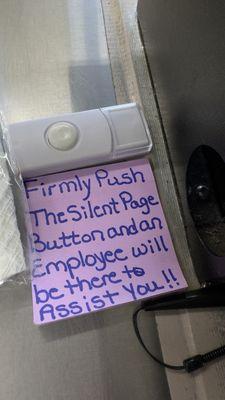 Firmly Push
The Silent Page
Button and an
Employee will
be there to
Assist You!!